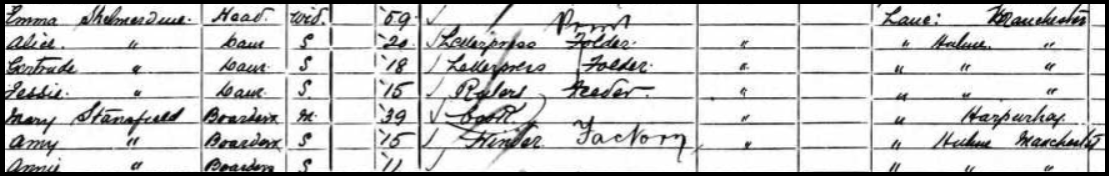 Emma Shelmerdine Head Wid 59 Lanc: Manchester
Print
Alice " Daur S 20 Letterpress Folder " " Hulme "
Gertrude " Daur S 18 Letterpress Folder " " " "
Jessie " Daur S 15 Rulers Feeder " " " "
Mary Stansfield Boarder M 39 Cook " " Harpurhay
Amy " Boarder S 15 Winder Factory " " Hulme Manchester
Annie " Boarder S 11 " " "